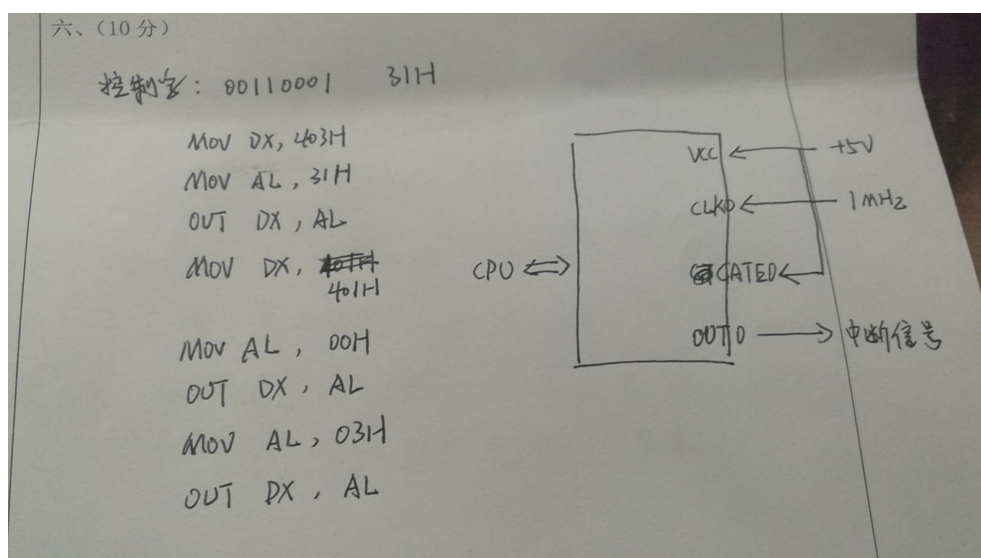 六、（10 分）
控制字： 00110001 31H
MOV DX, 403H
MOV AL, 31H
OUT DX, AL
MOV DX,
401H
MOV AL, 00H
OUT DX, AL
MOV AL, 03H
OUT DX, AL
CPU
VCC
+5V
CLK0
1MHz
GATE0
OUT0
中断信号